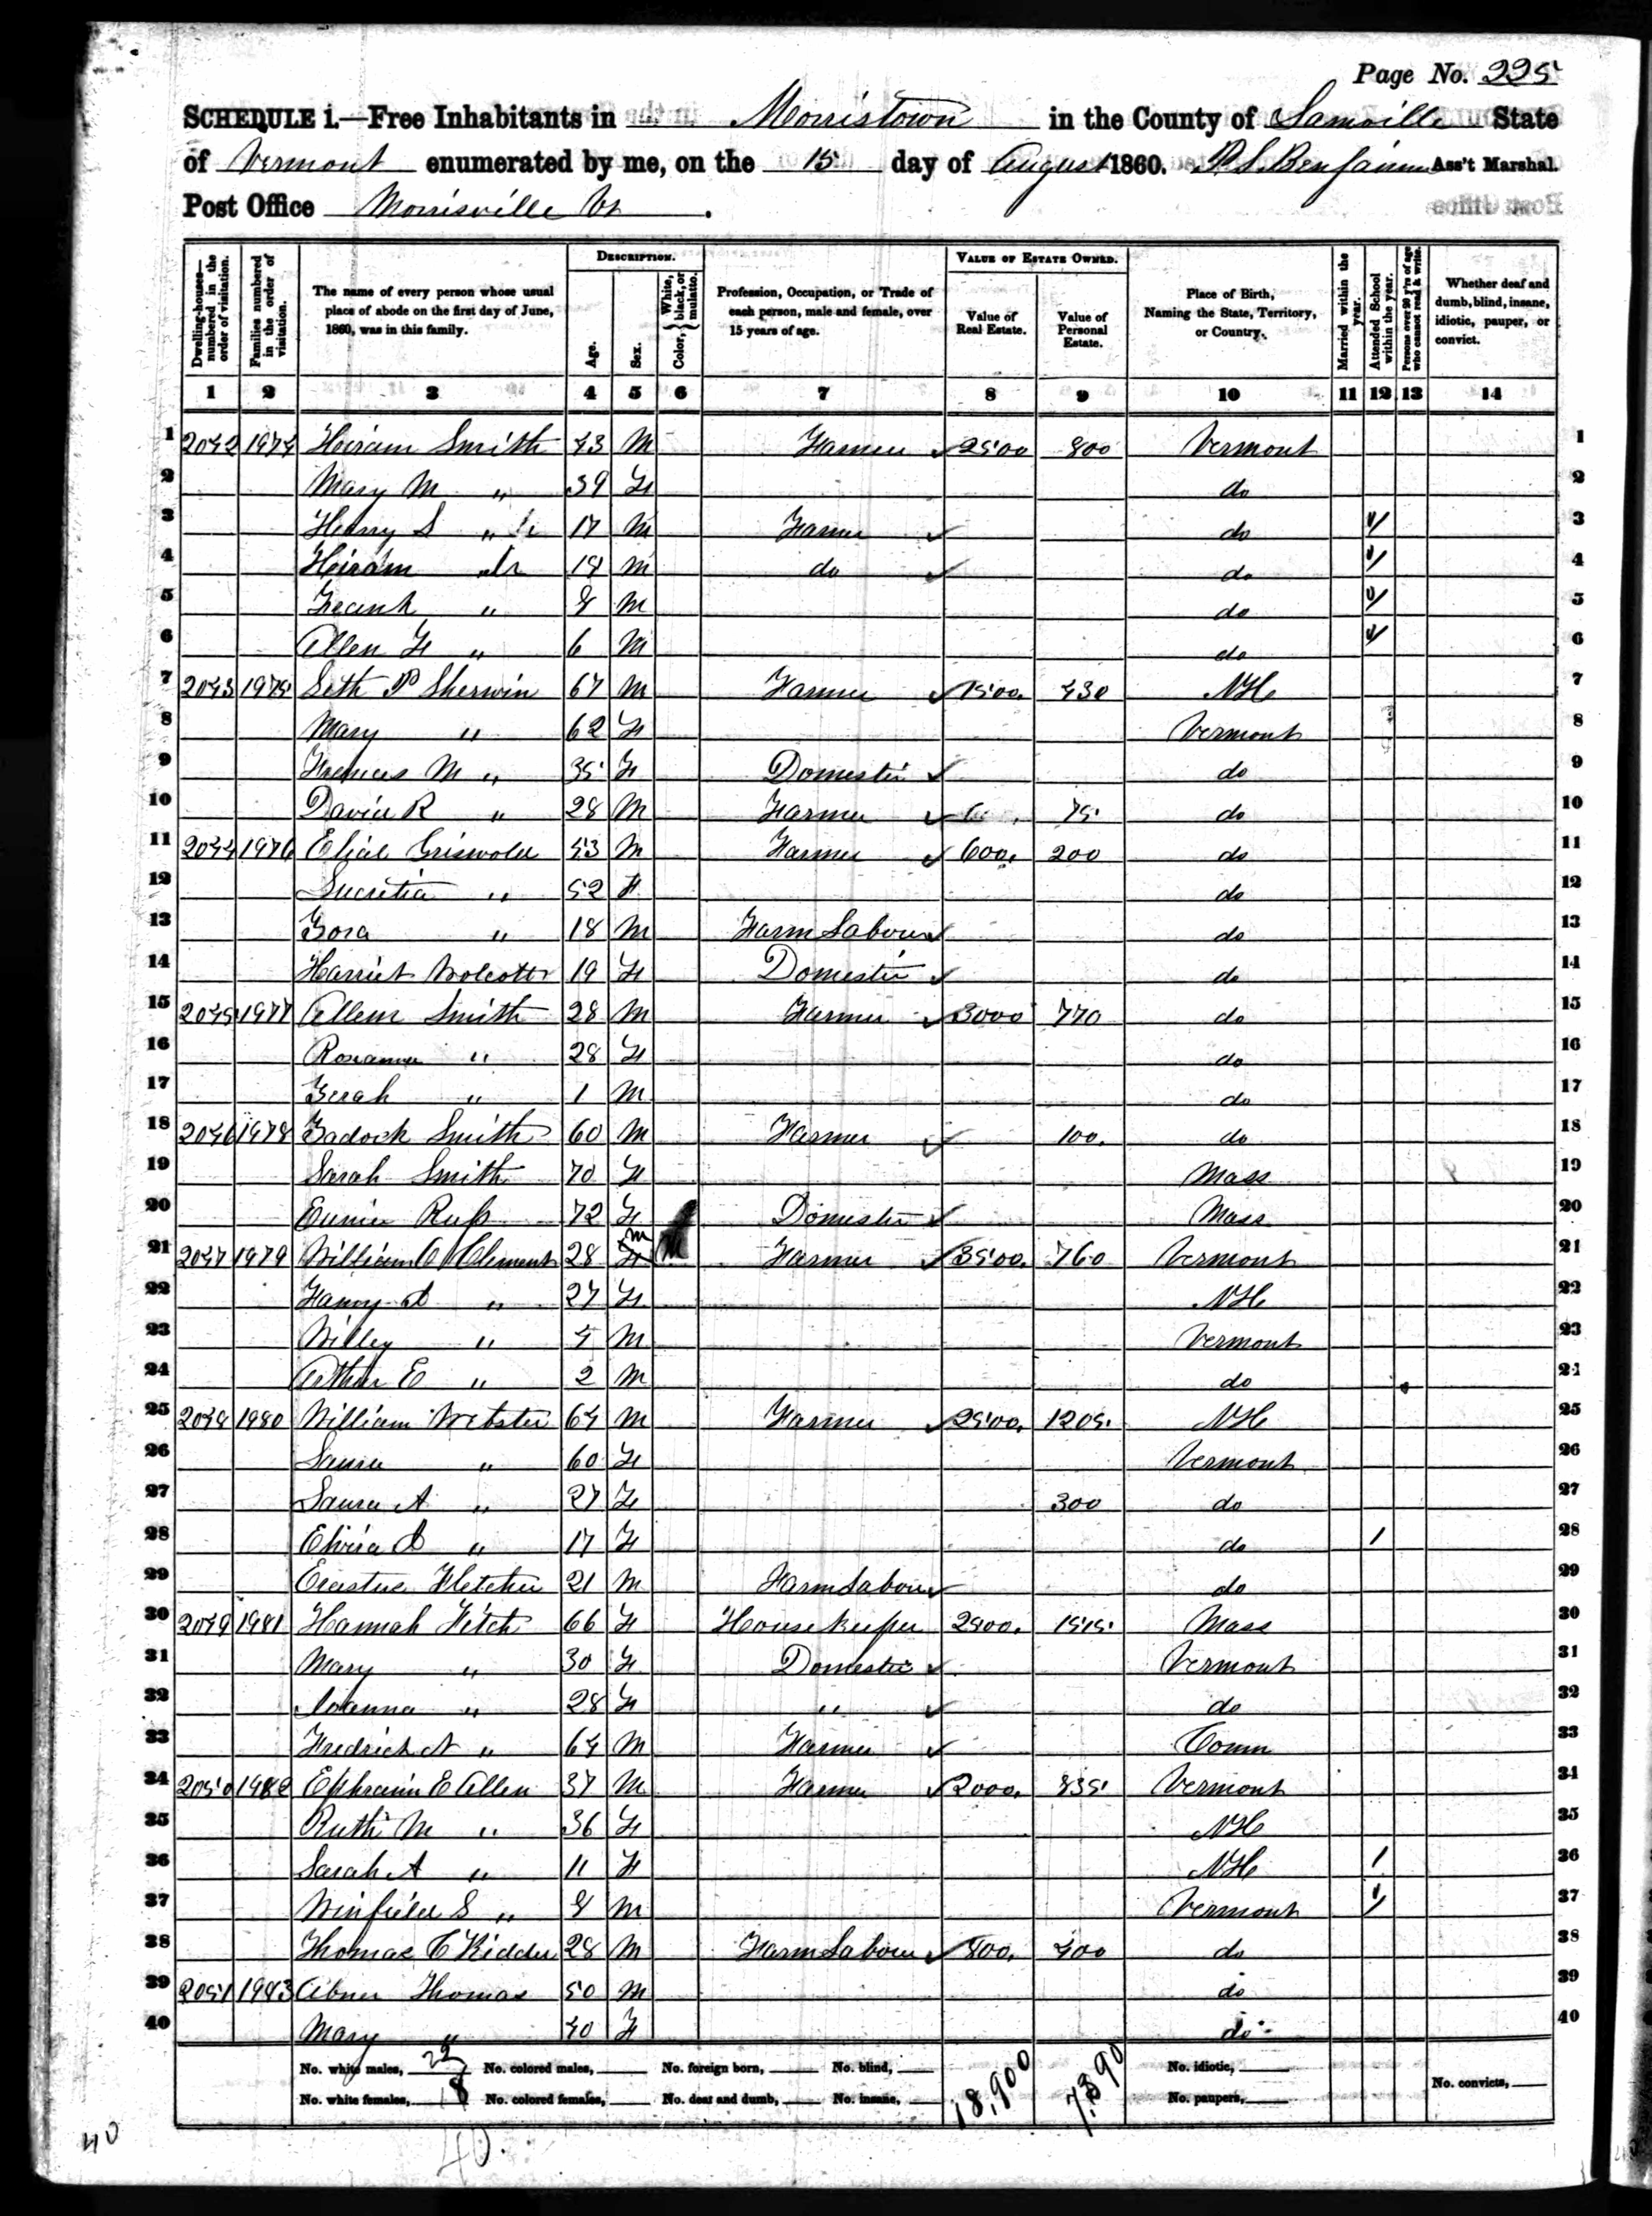 Page No. 225
SCHEDULE 1.—Free Inhabitants in Morristown in the County of Lamoille State
of Vermont enumerated by me, on the 15 day of August 1860. P. S. Benjamin Ass't Marshal.
Post Office Morrisville Vt.
DESCRIPTION. VALUE OF ESTATE OWNED.
Dwelling-houses—numbered in the order of visitation. Families numbered in the order of visitation. The name of every person whose usual place of abode on the first day of June, 1860, was in this family. Age. Sex. Color, White, black, or mulatto. Profession, Occupation, or Trade of each person, male and female, over 15 years of age. Value of Real Estate. Value of Personal Estate. Place of Birth, Naming the State, Territory, or Country. Married within the year. Attended School within the year. Persons over 20 y'rs of age who cannot read & write. Whether deaf and dumb, blind, insane, idiotic, pauper, or convict.
1 2 3 4 5 6 7 8 9 10 11 12 13 14
1 2042 1974 Heiram Smith 43 M Farmer 2500 800 Vermont 1
2 Mary M " 39 F do 2
3 Henry S " 17 M Farmer do 1 3
4 Heiram Jr M do do 1 4
5 Frank " 8 M do 1 5
6 Allen F " 6 M do 1 6
7 2043 1975 Seth P Sherwin 67 M Farmer 1500. 430 NH 7
8 Mary " 62 F Vermont 8
9 Frances M " 35 F Domestic do 9
10 David R " 28 M Farmer 75. do 10
11 2044 1976 Griswold 53 M Farmer 600. 200 do 11
12 Lucretia " 52 F do 12
13 " 18 M Farm Labour do 13
14 Harriet Wolcott 19 F Domestic do 14
15 2045 1977 Allen Smith 28 M Farmer 3000 770 do 15
16 Roxanna " 28 F do 16
17 Zerah " 1 M do 17
18 2046 1978 Zadock Smith 60 M Farmer 100. do 18
19 Sarah Smith 70 F Mass 19
20 Eunice Russ 72 F Domestic Mass 20
21 2047 1979 William C Clement 28 M Farmer 3500. 760 Vermont 21
22 Fanny A " 27 F NH 22
23 Willey " 4 M Vermont 23
24 Arthur E " 2 M do 24
25 2048 1980 William Webster 64 M Farmer 2500. 1205. NH 25
26 Laura " 60 F Vermont 26
27 Laura A " 27 F 300 do 27
28 Elvira " 17 F do 1 28
29 Erastus Fletcher 21 M Farm Labour do 29
30 2049 1981 Hannah Fitch 66 F House Keeper 1515. Mass 30
31 Mary " 30 F Domestic Vermont 31
32 Joanna " 28 F " do 32
33 Fredrick N " 64 M Farmer Conn 33
34 2050 1982 Ephraim E Allen 37 M Farmer 2000. 835. Vermont 34
35 Ruth M " 36 F NH 35
36 Sarah A " 11 F NH 1 36
37 Winfield S " 8 M Vermont 1 37
38 Thomas C Kidder 28 M Farm Labour 800. 400 do 38
39 2051 1983 Abner Thomas 50 M do 39
40 Mary " 40 F do 40
No. white males, 22 No. colored males, No. foreign born, No. blind, 18,900 7,390 No. idiotic,
No. white females, 18 No. colored females, No. deaf and dumb, No. insane, No. paupers, No. convicts,
40
40